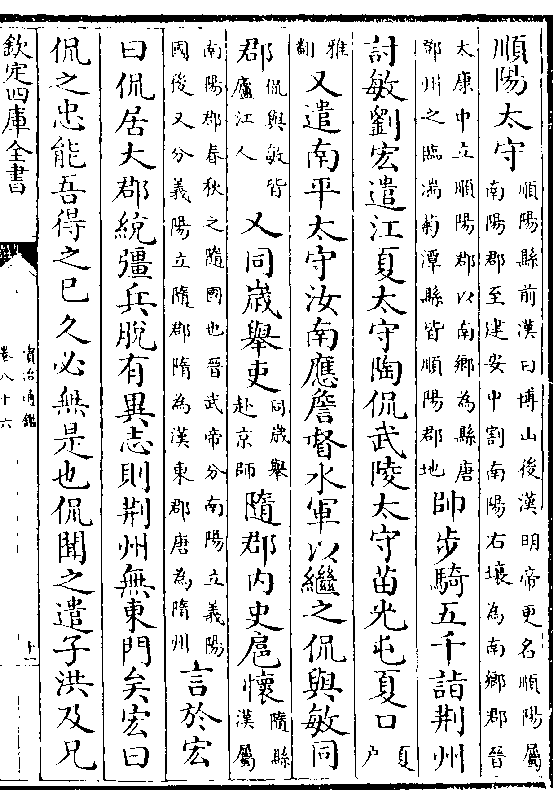 順陽太守順陽縣前漢曰博山後漢明帝更名順陽屬南陽郡至建安中割南陽右壤為南鄉郡晉
太康中立順陽郡以南鄉為縣唐鄧州之臨湍菊潭縣皆順陽郡地帥步騎五千詣荆州
討敏劉宏遣江夏太守陶侃武陵太守苗光屯夏口夏戶
雅翻又遣南平太守汝南應詹督水軍以繼之侃與敏同
郡侃與敏皆廬江人又同歲舉吏同歲舉赴京師隨郡内史扈懷隨縣漢屬
南陽郡春秋之隨國也晉武帝分南陽立義陽國後又分義陽立隨郡隋為漢東郡唐為隋州言於宏
曰侃居大郡統彊兵脱有異志則荆州無東門矣宏曰
侃之忠能吾得之已久必無是也侃聞之遣子洪及兄
欽定四庫全書
資治通鑑
卷八十六
十一